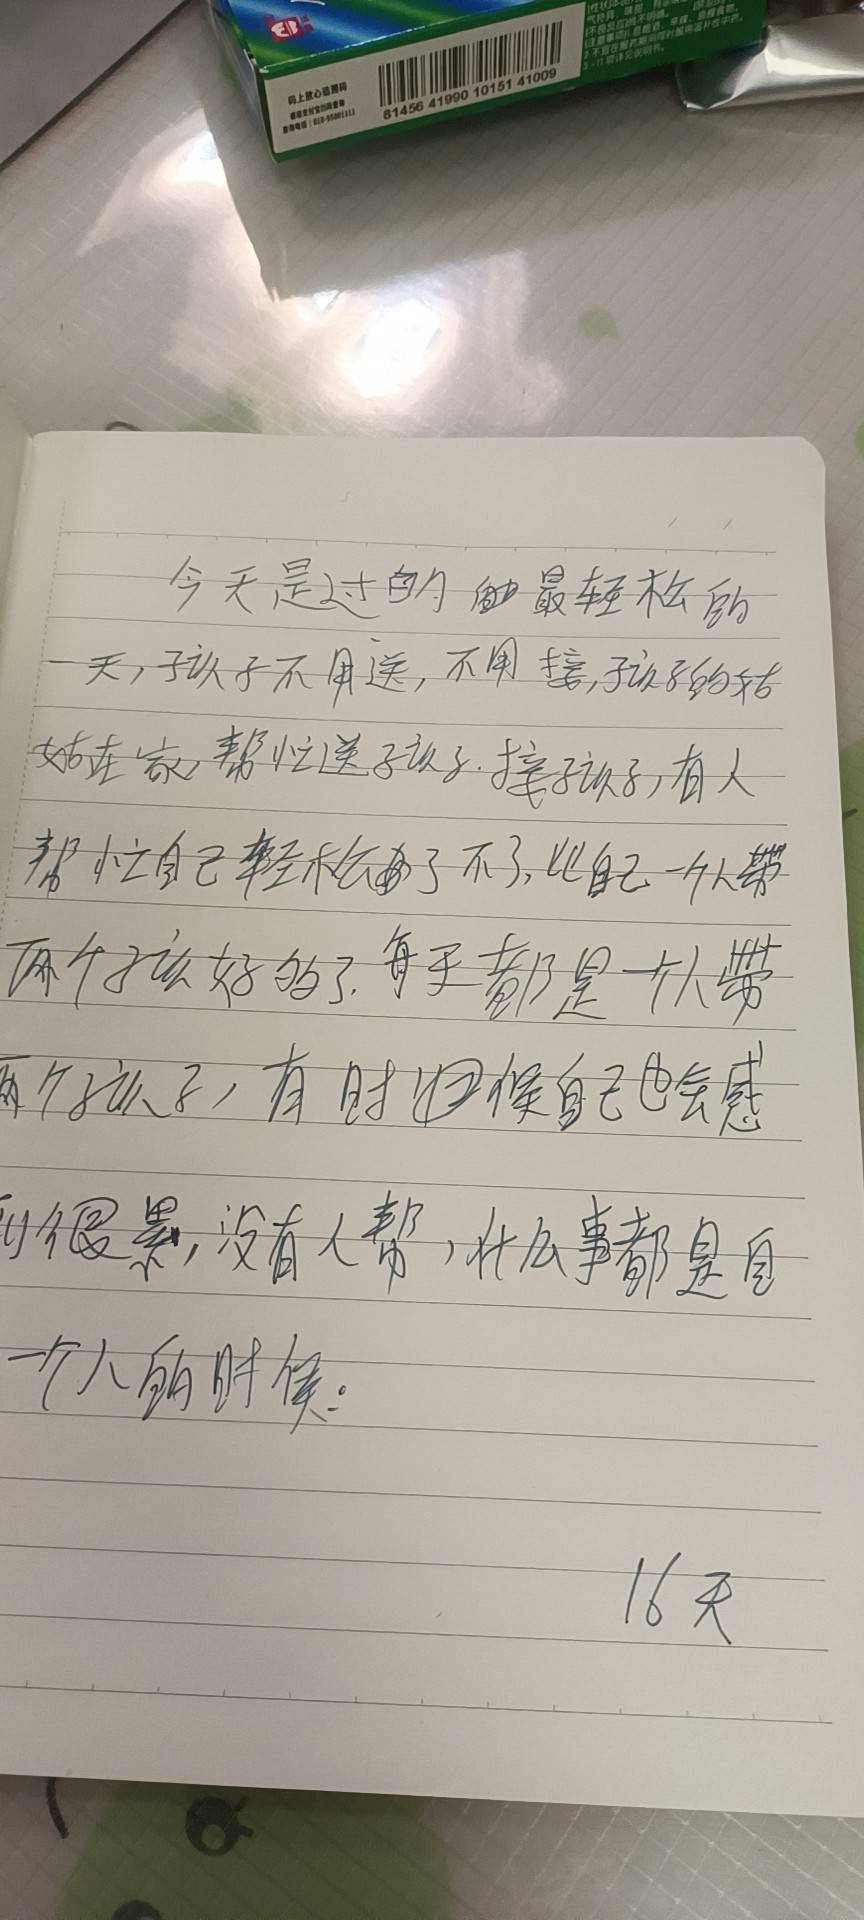 码上放心追溯码
81456 41990 10151 41009
今天是过的 最轻松的
一天，孩子不用送，不用接，孩子的姑
姑在家，帮忙送孩子.接孩子，有人
帮忙自己轻松 了不了，比自己一个人带
两个孩好的了.每天都是一个人带
两个孩子，有时 候自己也会感
到很累，没有人帮，什么事都是自
一个人的时候：
16天